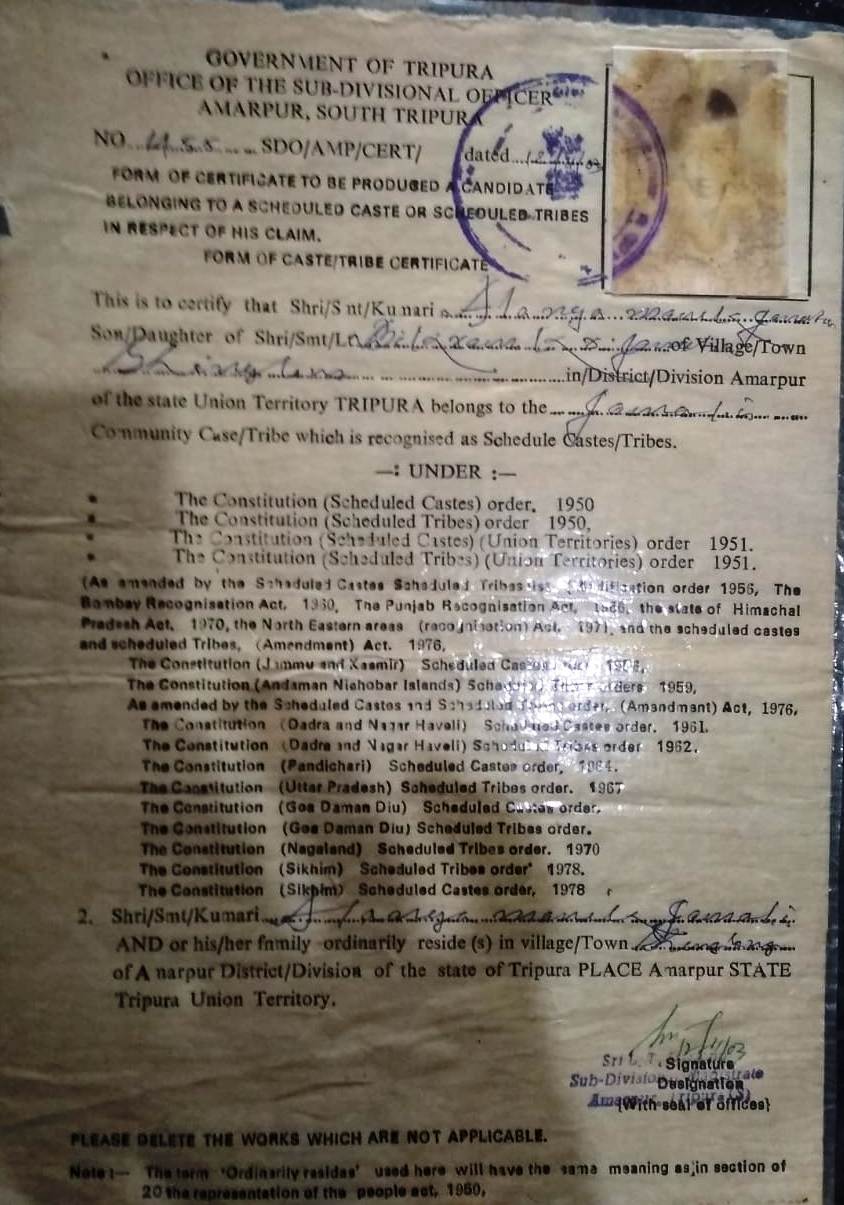 GOVERNMENT OF TRIPURA
OFFICE OF THE SUB-DIVISIONAL OFFICER
AMARPUR, SOUTH TRIPURA
NO. SDO/AMP/CERT/ dated
FORM OF CERTIFICATE TO BE PRODUCED A CANDIDATE
BELONGING TO A SCHEDULED CASTE OR SCHEDULED TRIBES
IN RESPECT OF HIS CLAIM.
FORM OF CASTE/TRIBE CERTIFICATE
This is to certify that Shri/Smt/Kumari
Son/Daughter of Shri/Smt/Lt. of Village/Town
in/District/Division Amarpur
of the state Union Territory TRIPURA belongs to the Jamatia
Community Case/Tribe which is recognised as Schedule Castes/Tribes.
—: UNDER :—
The Constitution (Scheduled Castes) order. 1950
The Constitution (Scheduled Tribes) order 1950,
The Constitution (Scheduled Castes) (Union Territories) order 1951.
The Constitution (Scheduled Tribes) (Union Territories) order 1951.
(As amended by the Scheduled Castes Scheduled Tribes list order 1956, The
Bombay Recognisation Act. 1960, The Punjab Recognisation Act, the state of Himachal
Pradesh Act. 1970, the North Eastern areas (recognisation) Act. 1971, and the scheduled castes
and scheduled Tribes, (Amendment) Act. 1976,
The Constitution (Jammu and Kasmir) Scheduled Castes
The Constitution (Andaman Niahobar Islands) Scheduled 1959,
As amended by the Scheduled Castes and Scheduled order, (Amendment) Act, 1976,
The Constitution (Dadra and Nagar Haveli) Scheduled Castes order. 1961.
The Constitution (Dadra and Nagar Haveli) Scheduled Tribes order 1962.
The Constitution (Pandichari) Scheduled Castes order, 1964.
The Constitution (Uttar Pradesh) Scheduled Tribes order. 1967
The Constitution (Goa Daman Diu) Scheduled Castes order.
The Constitution (Goa Daman Diu) Scheduled Tribes order.
The Constitution (Nagaland) Scheduled Tribes order. 1970
The Constitution (Sikhim) Scheduled Tribes order 1978.
The Constitution (Sikhim) Scheduled Castes order, 1978
2. Shri/Smt/Kumari
AND or his/her family ordinarily reside (s) in village/Town
of Amarpur District/Division of the state of Tripura PLACE Amarpur STATE
Tripura Union Territory.
12/11/03
Signature
Designation
{With seal of offices}
PLEASE DELETE THE WORKS WHICH ARE NOT APPLICABLE.
Note :— The term 'Ordinarily resides' used here will have the same meaning as,in section of
20 the representation of the people act, 1950,